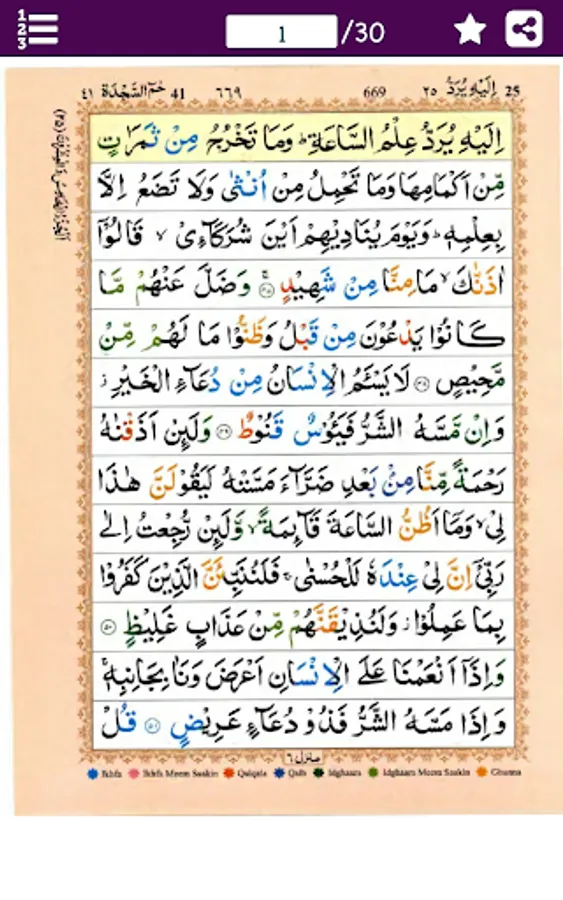 1
2
3
1 /30
٤١ حٰمٓ السَّجْدَة 41 ٦٦٩ 669 اِلَيْهِ يُرَدُّ ٢٥ 25
اِلَيْهِ يُرَدُّ عِلْمُ السَّاعَةِ ؕ وَمَا تَخْرُجُ مِنْ ثَمَرٰتٍ
مِّنْ اَكْمَامِهَا وَمَا تَحْمِلُ مِنْ اُنْثٰى وَلَا تَضَعُ اِلَّا
بِعِلْمِهٖ ؕ وَيَوْمَ يُنَادِيْهِمْ اَيْنَ شُرَكَآءِىْ ۙ قَالُوْۤا
اٰذَنّٰكَ ۙ مَا مِنَّا مِنْ شَهِيْدٍ ۚ ﴿٤٧﴾ وَضَلَّ عَنْهُمْ مَّا
كَانُوْا يَدْعُوْنَ مِنْ قَبْلُ وَظَنُّوْا مَا لَهُمْ مِّنْ
مَّحِيْصٍ ﴿٤٨﴾ لَا يَسْئَمُ الْاِنْسَانُ مِنْ دُعَآءِ الْخَيْرِ ز
وَاِنْ مَّسَّهُ الشَّرُّ فَيَئُوْسٌ قَنُوْطٌ ﴿٤٩﴾ وَلَئِنْ اَذَقْنٰهُ
رَحْمَةً مِّنَّا مِنْۢ بَعْدِ ضَرَّآءَ مَسَّتْهُ لَيَقُوْلَنَّ هٰذَا
لِىْ ۙ وَمَاۤ اَظُنُّ السَّاعَةَ قَآئِمَةً ۙ وَّلَئِنْ رُّجِعْتُ اِلٰى
رَبِّىْۤ اِنَّ لِىْ عِنْدَهٗ لَلْحُسْنٰى ۚ فَلَنُنَبِّئَنَّ الَّذِيْنَ كَفَرُوْا
بِمَا عَمِلُوْا ز وَلَنُذِيْقَنَّهُمْ مِّنْ عَذَابٍ غَلِيْظٍ ﴿٥٠﴾
وَاِذَاۤ اَنْعَمْنَا عَلَى الْاِنْسَانِ اَعْرَضَ وَنَاٰ بِجَانِبِهٖ ۚ
وَاِذَا مَسَّهُ الشَّرُّ فَذُوْ دُعَآءٍ عَرِيْضٍ ﴿٥١﴾ قُلْ
منزل ٦
Ikhfa Ikhfa Meem Saakin Qalqala Qalb Idghaam Idghaam Meem Saakin Ghunna